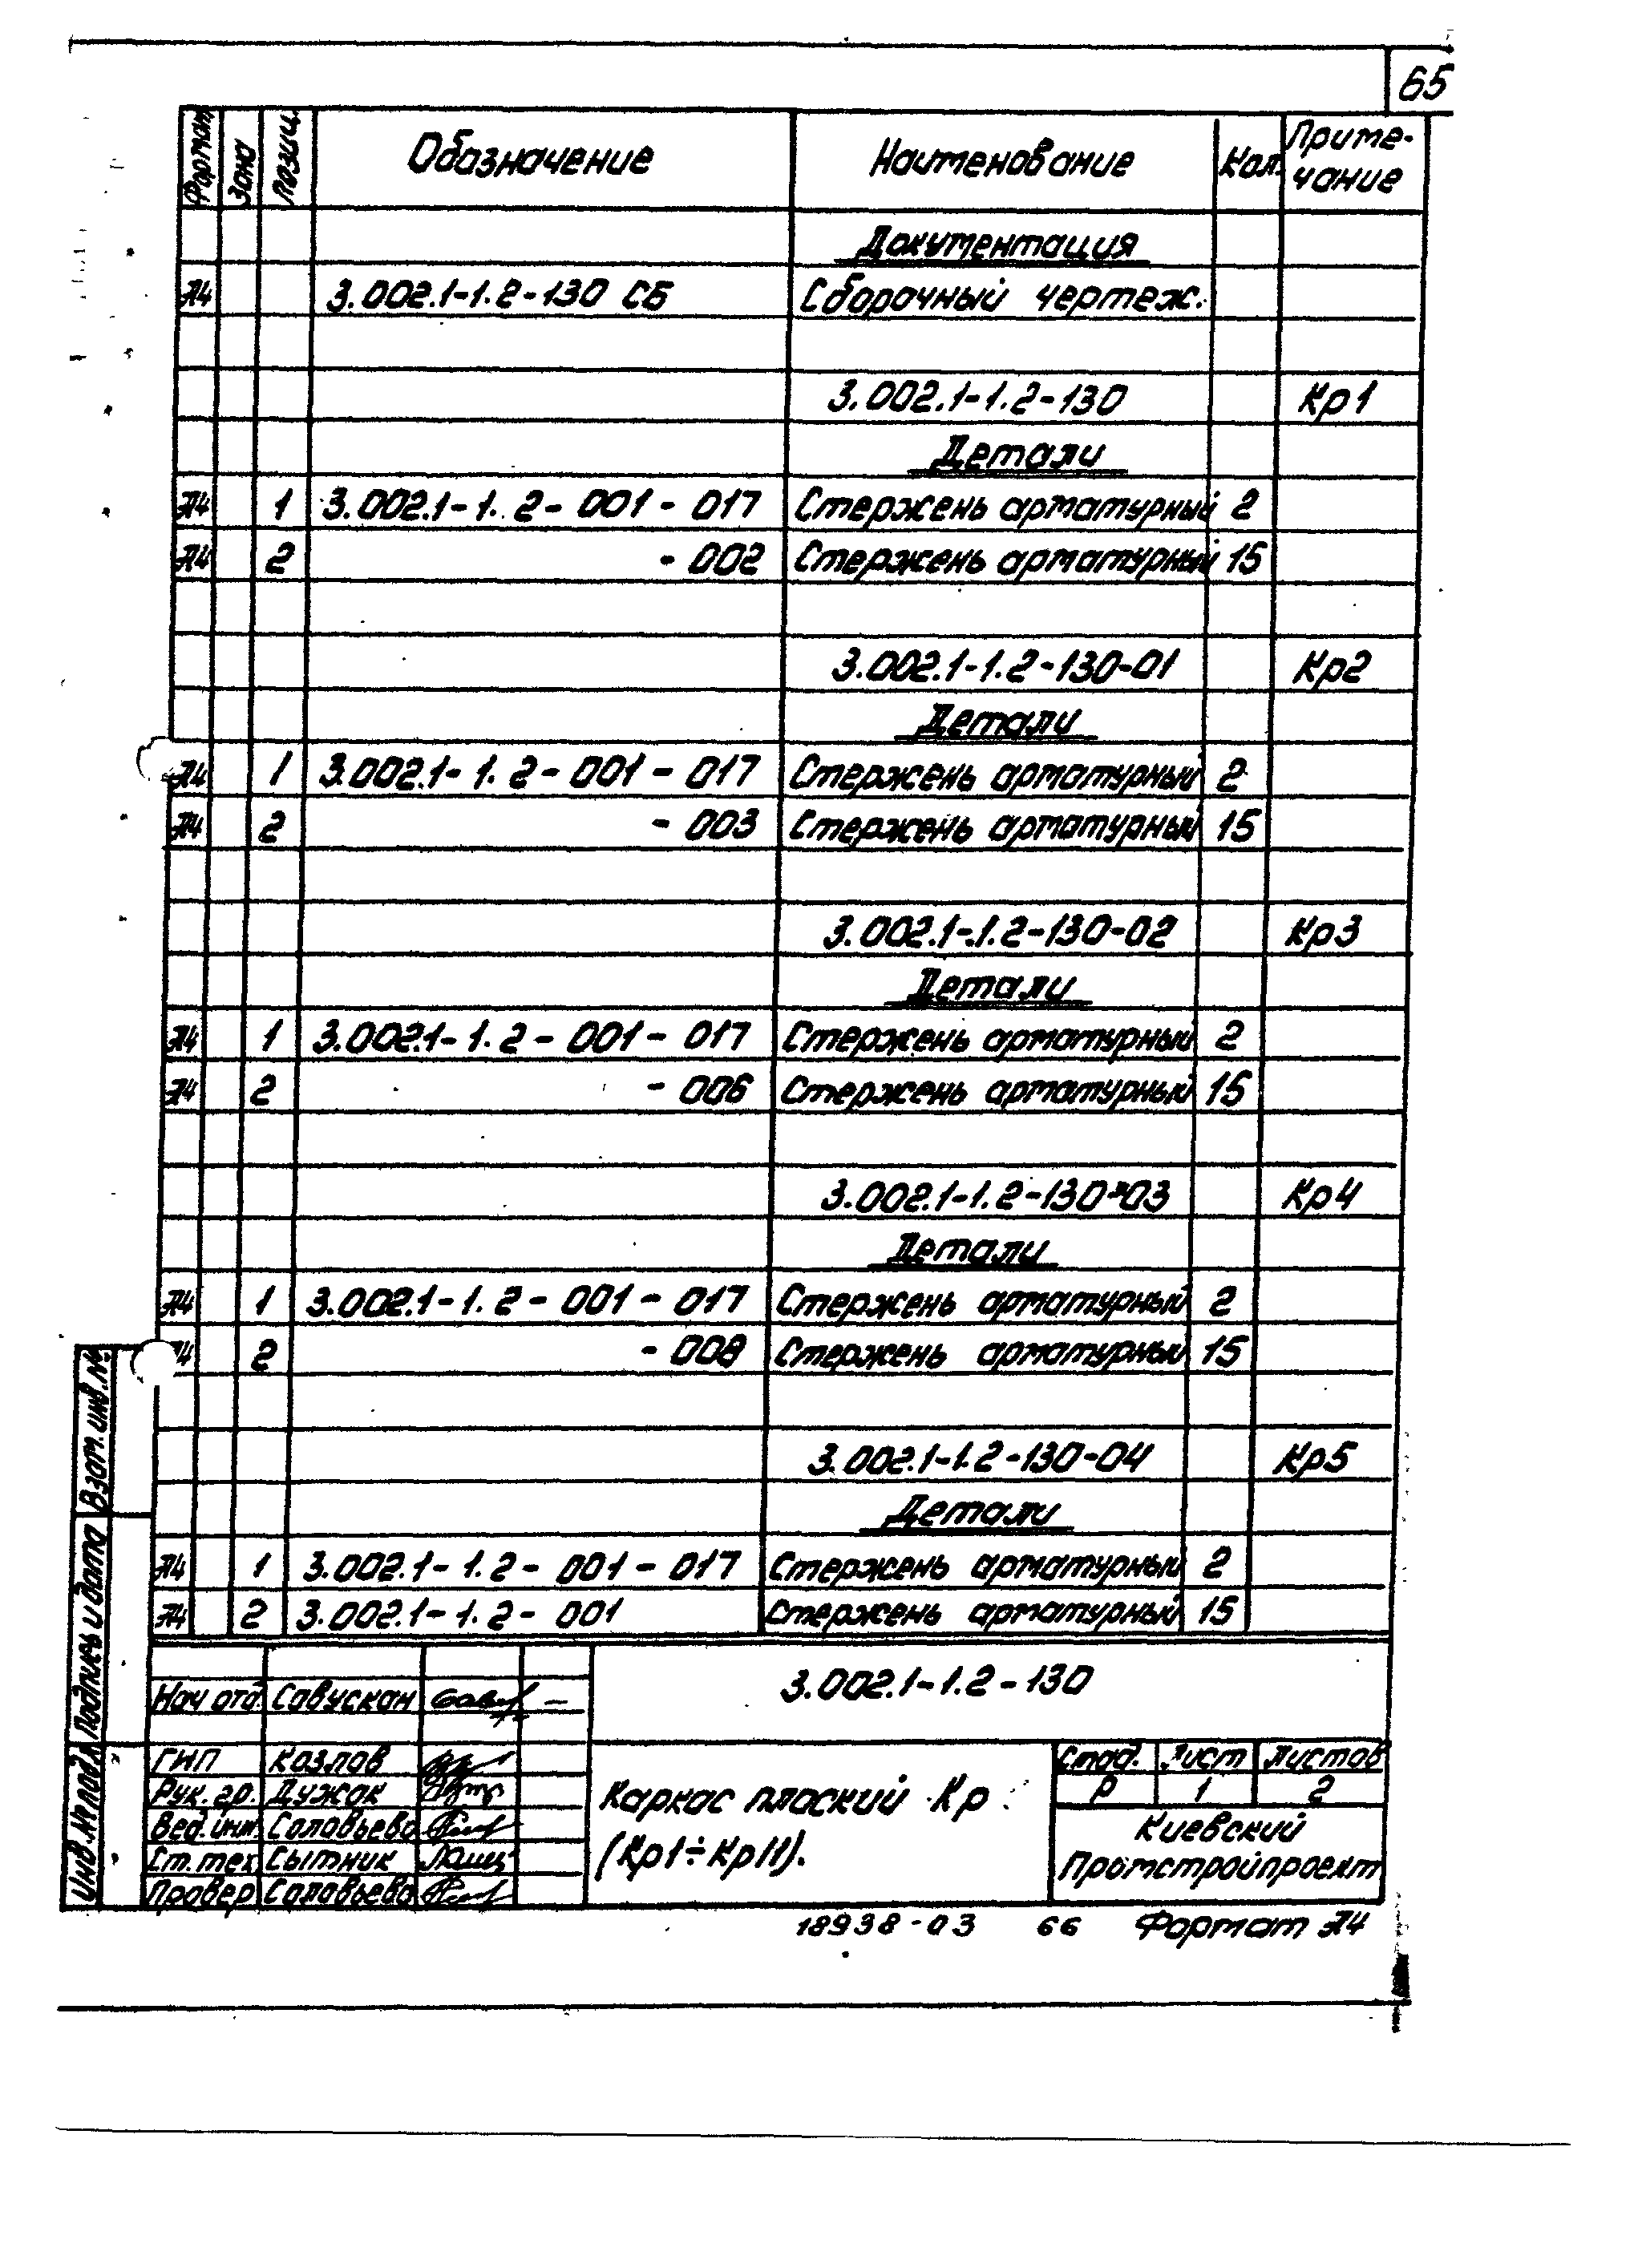 65
Формат Зона Позиц. Обозначение Наименование Кол. Приме-
чание
Документация
А4 3.002.1-1.2-130 СБ Сборочный чертеж.
3.002.1-1.2-130 Кр1
Детали
А4 1 3.002.1-1.2-001-017 Стержень арматурный 2
А4 2 -002 Стержень арматурный 15
3.002.1-1.2-130-01 Кр2
Детали
А4 1 3.002.1-1.2-001-017 Стержень арматурный 2
А4 2 -003 Стержень арматурный 15
3.002.1-1.2-130-02 Кр3
Детали
А4 1 3.002.1-1.2-001-017 Стержень арматурный 2
А4 2 -006 Стержень арматурный 15
3.002.1-1.2-130-03 Кр4
Детали
А4 1 3.002.1-1.2-001-017 Стержень арматурный 2
А4 2 -008 Стержень арматурный 15
3.002.1-1.2-130-04 Кр5
Детали
А4 1 3.002.1-1.2-001-017 Стержень арматурный 2
А4 2 3.002.1-1.2-001 Стержень арматурный 15
Взам. инв. №
Подпись и дата
Инв. № подл.
3.002.1-1.2-130
Нач отд. Савускан
ГИП Козлов
Рук. гр. Дужак
Вед. инж. Соловьева
Ст. тех. Сытник
Провер Соловьева
Каркас плоский Кр
(Кр1÷Кр11).
Стад. Лист Листов
Р 1 2
Киевский
Промстройпроект
18938-03 66 Формат А4